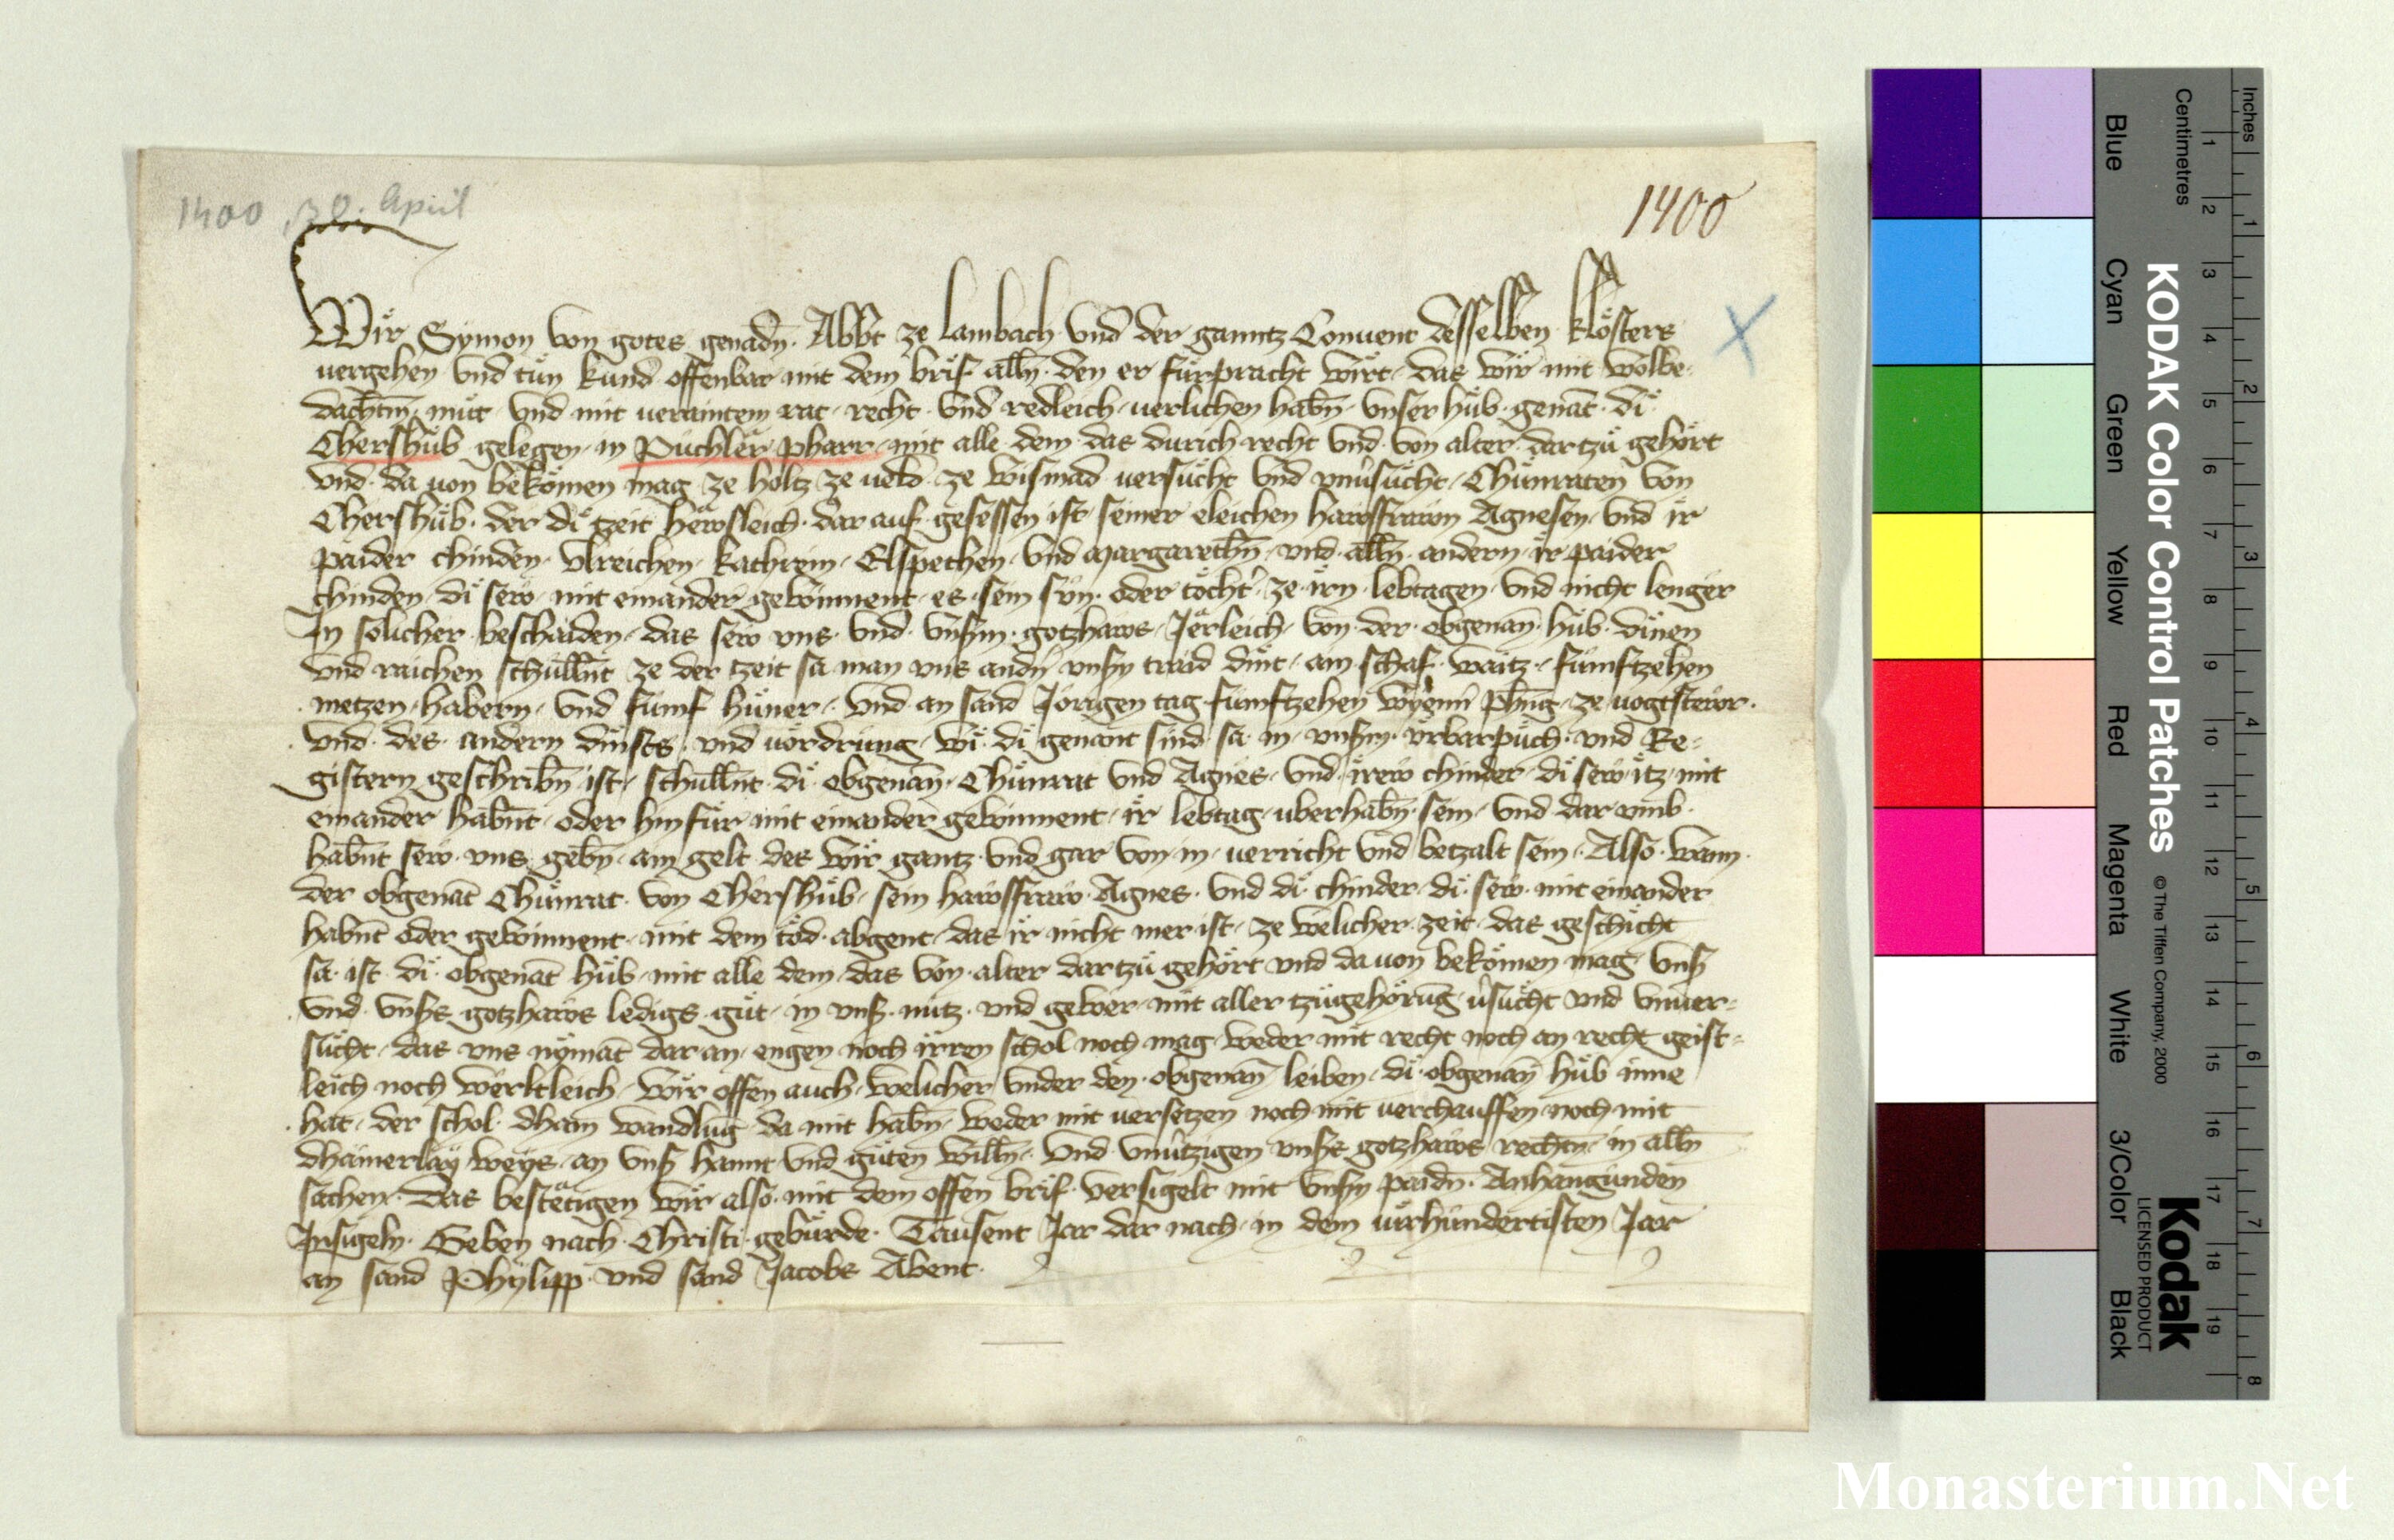 1400 30. April
1400
Wir Symon von gotes genadn̄ Abbt ze Lambach vnd der ganntz Conuent desselben klösters
uergehen vnd tün kund offenbar mit dem brif alln̄ den er fürpracht wirt das wir mit wolbe-
dachtm̄ müt vnd mit veraintem rat recht vnd redleich uerlichen habn̄ vnser hüb genāt di
Chershüb gelegen in Puchler pharr mit alle dem das durich recht vnd von alter dartzü gehört
vnd da uon bekömen mag ze holtz ze ueld ze wismad uersücht vnd vnu'sücht Chünraten von
Chershüb der di tzeit hewsleich dar auf gesessen ist seiner eleichen hawsfrawn Agnesen vnd ir
paider chinden Vlreichen kathrein Elspethen vnd Margarethn̄ vnd alln̄ andern ir paider
chinden di sew mit einander gewinnent es sein sün oder töcht' ze irn lebtagen vnd nicht lenger
In solicher beschaiden das sew vns vnd vnsm̄ gotzhaws Järleich von der obgenan̄ hüb dinen
vnd raichen schullnt ze der tzeit sa man vns andn̄ vnsn̄ traid dint ain schaf waitz fümftzehen
metzen habern vnd fümf hüner vnd an sand Jörigen tag fümftzehen wyenn' phn̄ig ze uogtstewr
vnd des andern dinsts vnd uordrung wi di genant sind sa in vnsm̄ vrbarpüch vnd Re-
gistern geschribn̄ ist schullnt di obgenan̄ Chünrat vnd Agnes vnd irew chinder di sew itz mit
einander habn̄t oder hinfür mit einander gewinnent ir lebtag uberhabn̄ sein vnd dar vmb
habn̄t sew vns gebn̄ ain gelt des wir gantz vnd gar von in uerricht vnd betzalt sein Also wann
der obgenāt Chünrat von Chershüb sein hawsfraw Agnes vnd di chinder di sew mit einander
habn̄t oder gewinnent mit dem töd abgent das ir nicht mer ist ze welicher zeit das geschicht
sa ist di obgenāt hüb mit alle dem das von alter dartzü gehört vnd da uon bekömen mag vns'
vnd vnss gotzhaws ledigs güt in vns' nutz vnd gewer mit aller tzügehörūg u'sücht vnd vnuer-
sücht das vns nymāt dar an engen noch irren schol noch mag weder mit recht noch an recht geist-
leich noch werltleich wir offen auch welicher vnder den obgenan̄ leiben di obgenan̄ hüb inne
hat der schol dhain wandlūg da mit habn̄ weder mit uersetzen noch mit uerchauffen noch mit
dhainerlay weys an vns' hannt vnd güten willn̄ vnd vnu'tzigen vnss gotzhaws rechtn̄ in alln̄
sachen Das bestätigen wir also mit dem offen brif versigelt mit vnsn̄ paidn̄ Anhangunden
Insigeln Geben nach Christi gebürde Tausent Jar dar nach in dem uirhundertisten Jar
an sand Phylipp vnd sand Jacobs Abent
Inches
Centimetres
1 2 3 4 5 6 7 8 9 10 11 12 13 14 15 16 17 18 19
1 2 3 4 5 6 7 8
Blue Cyan Green Yellow Red Magenta White 3/Color Black
KODAK Color Control Patches
© The Tiffen Company, 2000
Kodak
LICENSED PRODUCT
Monasterium.Net